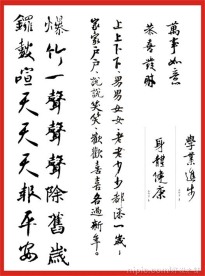 萬事如意
恭喜發財
學業進步
身體健康
上上下下、男男女女、老老少少、都添一歲，
家家戶戶、說說笑笑、歡歡喜喜、各過新年。
爆竹，一聲聲聲除舊歲
鑼鼓喧天天天報平安